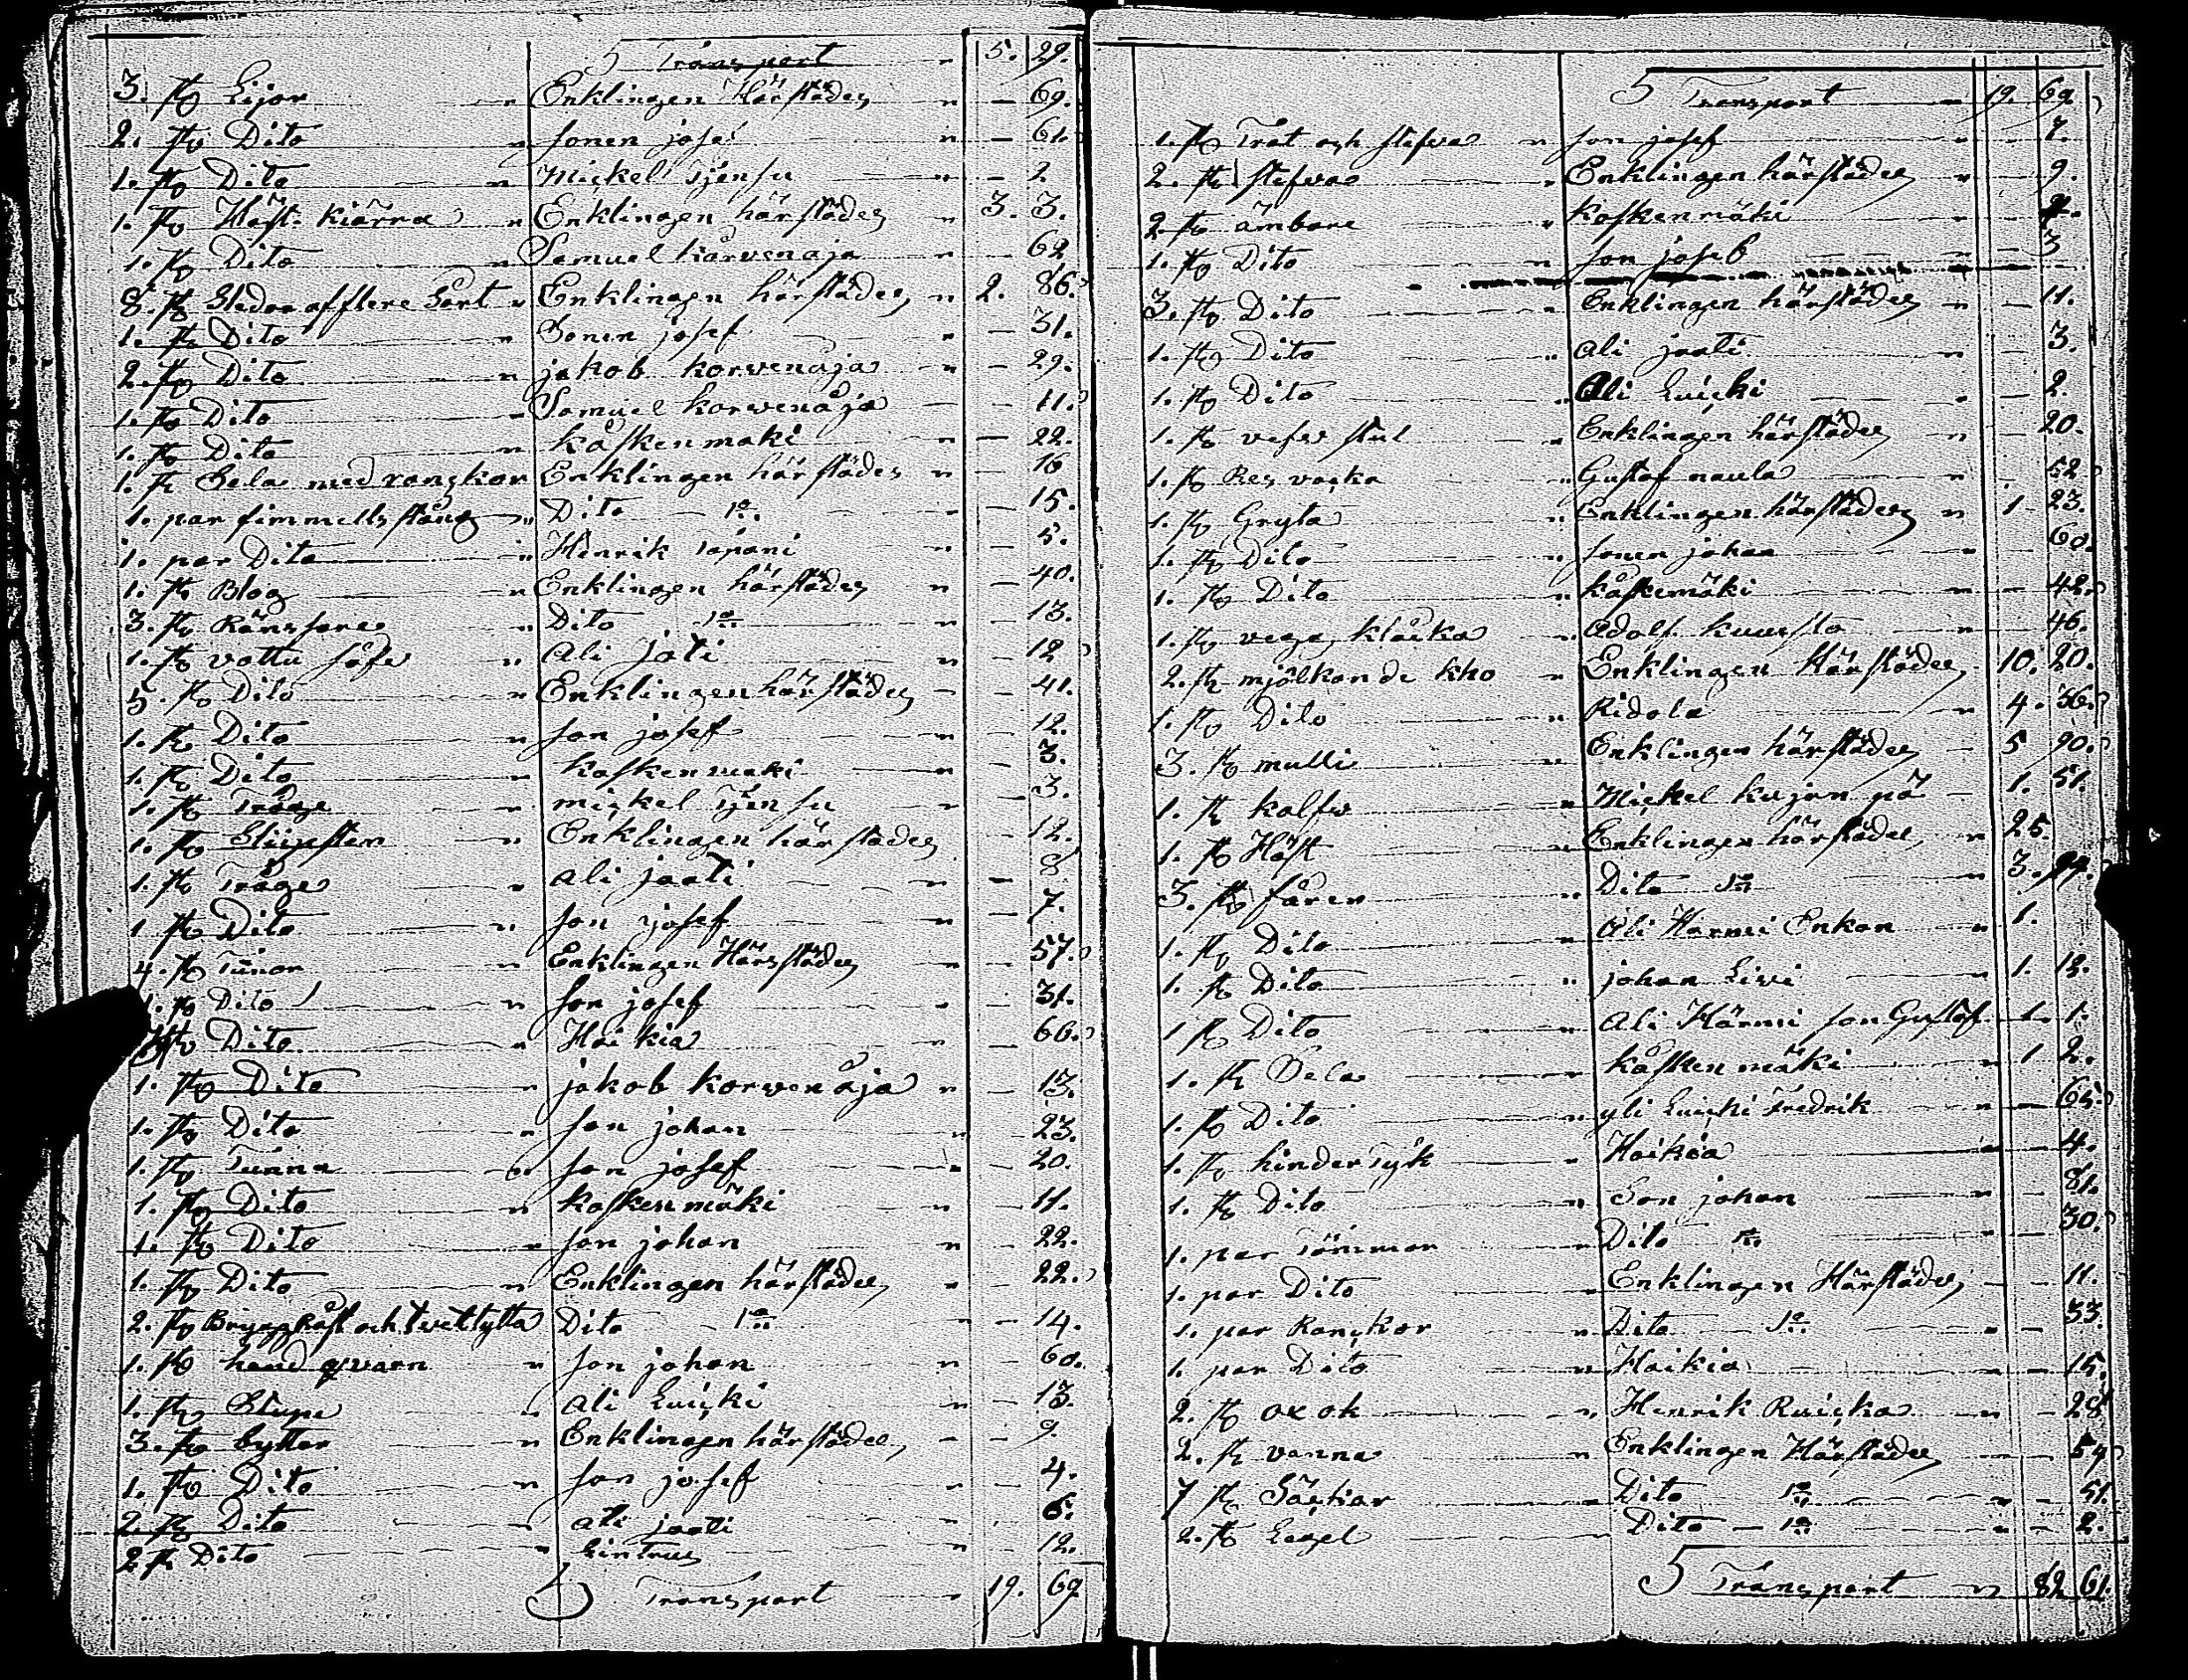 Transport " 5. 29.
3. st Lijor " Enklingen Härstädes " — 69.
2. st Dito " Sonen josef " — 61.
1. st Dito " Mickel Tjensu " — 2
1. st Häst kiärra " Enklingen härstädes " 3. 3.
1. st Dito " Samuel korvenoja " — 62
8. st Sledar af flere Sort " Enklingen härstädes " 2. 86.
1. st Dito " Sonen josef " — 31.
2. st Dito " jakob korvenoja " — 29.
1. st Dito " Samuel korvenåja — 11.
1. st Dito " kåskenmaki " — 22.
1. st Sela med rangkor Enklingen härstädes " — 16
1. par fimmelstång " Dito — 1a " — 15.
1. par Dito " Henrik Tapani " — 5.
1. st Blog " Enklingen härstädes " — 40.
3. st Rånsfore " Dito 1a " — 13.
1. st vattu såfe " Ali jati " — 12
5. st Dito " Enklingen härstädes — — 41.
1. st Dito " Son josef " — 12.
1. st Dito " kaskenmaki " — 3.
1. st Tråge " mickel Tjensu " — 3.
1. st Slipsten " Enklingen härstädes — 12.
1. st Tråge " Ali jaati " — 8
1 st Dito " Son josef " — 7.
4. st Tunor " Enklingen Härstädes " — 57.
1. st Dito " Son josef " — 31.
st Dito " Haikia " — 66.
1. st Dito " jakob korvenåja " — 13.
1. st Dito " Son johan " — 23.
1. st Tunna " Son josef " — 20.
1. st Dito " kaskenmäki " — 11.
1. st Dito " Son johan " — 22.
1. st Dito " Enklingen härstädes " — 22.
2. st Bryggkåst och tvettytta Dito — 1a " — 14.
1. st hand qvarn " Son johan " — 60.
1. st Stupe " Ali Luicki " — 13.
3. st bytter " Enklingen härstädes — — 9.
1. st Dito " Son josef " — 4.
2. st Dito " Ali jaati " — 6.
2 st Dito " Lintrus " — 12.
Transport " 19. 69
Transport " 19. 69
1. st Trat och stefva " Son josef — 7.
2. st stefvar " Enklingen härstädes " — 9.
2 st ämbare " Koskenmäki — —
1. st Dito " Son joseb — 3
3. st Dito " Enklingen härstädes " — 11.
1. st Dito " Ali jaati " — 3.
1. st Dito " Ali Luicki " — 2.
1. st vefv stul " Enklingen härstädes " — 20.
1. st Res vacka " Gustaf naula " — 52
1. st Gryta " Enklingen härstädes " 1 23.
1. st Dito " Sonen johan " — 60.
1. st Dito " kåskemäki " — 42.
1. st vegg klåcka " Adolf kuusto " — 46.
2. st mjölkande kko " Enklingen Härstädes 10. 20.
1. st Dito " Ridola " 4. 36.
3. st mulli " Enklingen härstädes — 5 90.
1. st kalfv " Mickel kujan pä — 1. 51.
1. st Häst " Enklingen härstädes " 25.
3. st fåren " Dito 1a " 3.
1. st Dito " Ali Harmi Enkan " 1.
1. st Dito " johan Livi " 1. 12.
1 st Dito " Ali Härmi son Gustaf 1. 1.
1. st Sela " kåskenmäki " 1 2.
1. st Dito " yli Luicki Fredrik " — 65.
1. st hinder Tyk " Haikia " — 4.
1. st Dito " Son johan " — 81.
1. par Tömmar " Dito 1a " — 30.
1. par Dito " Enklingen Härstädes — — 11.
1. par Ranckor " Dito 1a " — 33.
1. par Dito " Haikia — 15.
2. st ox ok " Henrik Ruicka " — 28.
2. st vanna " Enklingen Härstädes — 54
7 st Säckar " Dito 1a " — 51.
2. st Legel Dito — 1a " — 2.
Transport " 82 61.